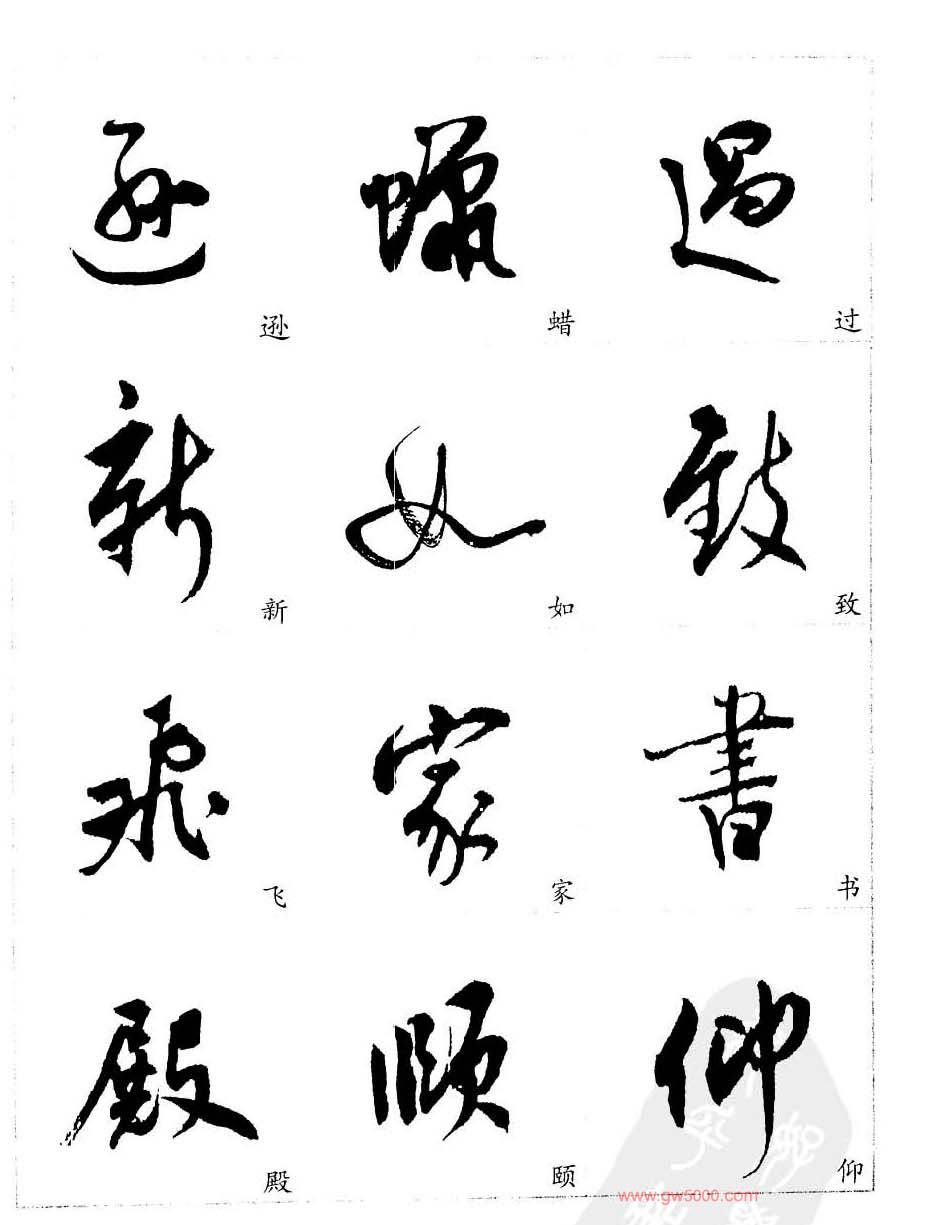 遜 蠟 過
逊 蜡 过
新 如 致
新 如 致
飛 家 書
飞 家 书
殿 頤 仰
殿 颐 仰
www.gw5000.com